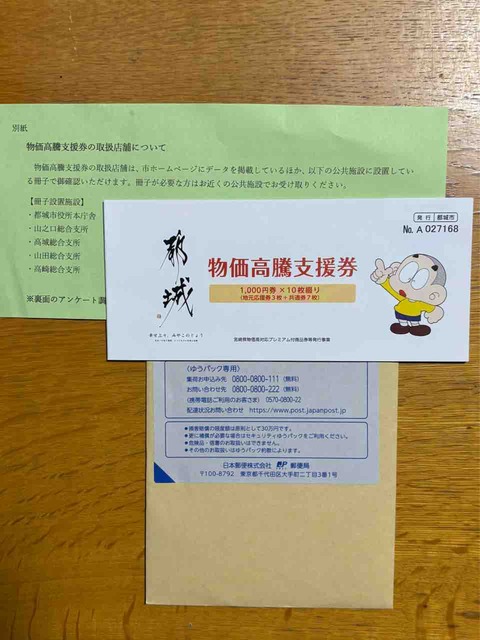 別紙
物価高騰支援券の取扱店舗について
物価高騰支援券の取扱店舗は、市ホームページにデータを掲載しているほか、以下の公共施設に設置してい
る冊子で御確認いただけます。冊子が必要な方はお近くの公共施設でお受け取りください。
【冊子設置施設】
・都城市役所本庁舎
・山之口総合支所
・高城総合支所
・山田総合支所
・高崎総合支所
※裏面のアンケート調
発行 都城市
No. A 027168
都城
物価高騰支援券
1,000円券×10枚綴り
(地元応援券3枚+共通券7枚)
宮崎県物価高対応プレミアム付商品券等発行事業
〈ゆうパック専用〉
集荷お申込み先 0800-0800-111 (無料)
お問い合わせ先 0800-0800-222 (無料)
(携帯電話ご利用のお客さま) 0570-0800-22
配達状況お問い合わせ https://www.post.japanpost.jp
●損害賠償の限度額は原則として30万円です。
●更に補償が必要な場合はセキュリティゆうパックをご利用ください。
●危険品・信書のお取扱いはできません。
●その他のお取扱いはゆうパック約款によります。
日本郵便株式会社 JP 郵便局
〒100-8792 東京都千代田区大手町二丁目3番1号